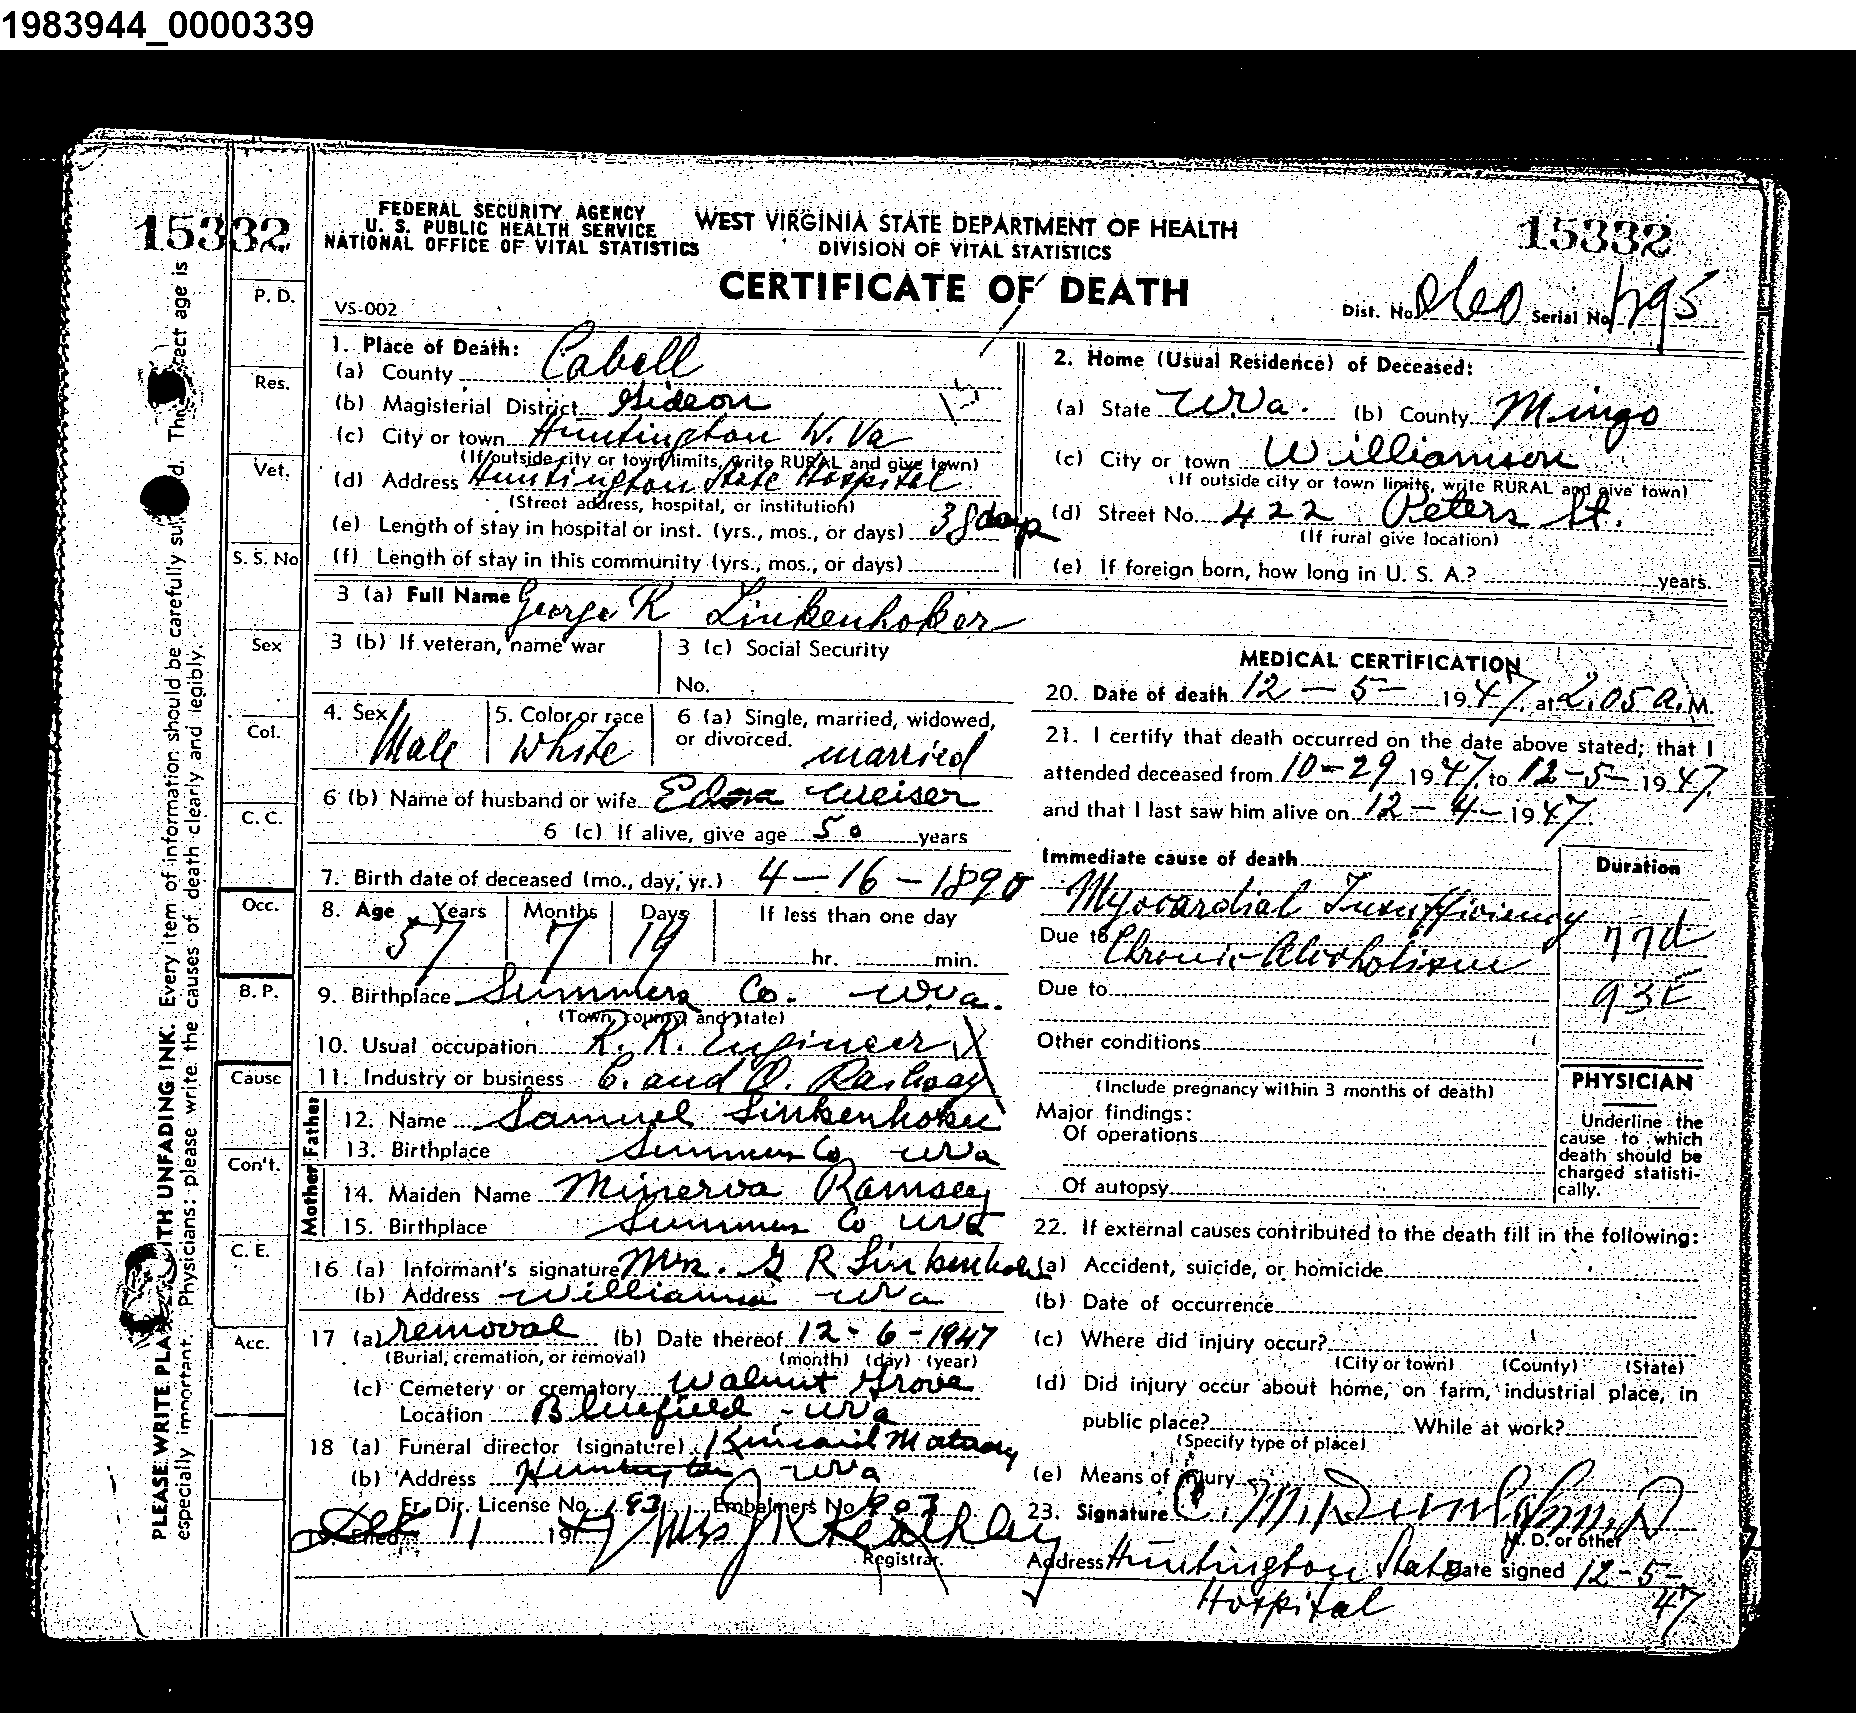 1983944_0000339
15332
FEDERAL SECURITY AGENCY
U. S. PUBLIC HEALTH SERVICE
NATIONAL OFFICE OF VITAL STATISTICS
WEST VIRGINIA STATE DEPARTMENT OF HEALTH
DIVISION OF VITAL STATISTICS
CERTIFICATE OF DEATH
15332
VS-002
Dist. No. Serial No. 1795
1. Place of Death:
(a) County Cabell
(b) Magisterial District Gideon
(c) City or town Huntington W. Va
(If outside city or town limits, write RURAL and give town)
(d) Address Huntington State Hospital
(Street address, hospital, or institution)
(e) Length of stay in hospital or inst. (yrs., mos., or days) 38 days
(f) Length of stay in this community (yrs., mos., or days)
2. Home (Usual Residence) of Deceased:
(a) State W.Va. (b) County Mingo
(c) City or town Williamson
(If outside city or town limits, write RURAL and give town)
(d) Street No. 422 Peters St.
(If rural give location)
(e) If foreign born, how long in U. S. A.? years.
3 (a) Full Name George R Linkenhoker
3 (b) If veteran, name war
3 (c) Social Security
No.
4. Sex Male
5. Color or race White
6 (a) Single, married, widowed,
or divorced. married
6 (b) Name of husband or wife Edna Weiser
6 (c) If alive, give age 50 years
7. Birth date of deceased (mo., day, yr.) 4-16-1890
8. Age Years Months Days If less than one day
57 7 19 hr. min.
9. Birthplace Summers Co. W.Va.
(Town, county, and state)
10. Usual occupation R. R. Engineer
11. Industry or business C. and O. Railway
Father
12. Name Samuel Linkenhoker
13. Birthplace Summers Co W Va
Mother
14. Maiden Name Minerva Ramsey
15. Birthplace Summers Co W Va
16 (a) Informant's signature Mrs. G R Linkenhoker
(b) Address Williamson W Va
17 (a) removal (b) Date thereof 12-6-1947
(Burial, cremation, or removal) (month) (day) (year)
(c) Cemetery or crematory Walnut Grove
Location Bluefield W Va
18 (a) Funeral director (signature) Kincaid
(b) Address Huntington W Va
Fr. Dir. License No. 193 Embalmers No. 903
Filed Dec 11 1947 Mrs J K Keathley
Registrar.
MEDICAL CERTIFICATION
20. Date of death 12-5- 1947, at 2:05 a.M.
21. I certify that death occurred on the date above stated; that I
attended deceased from 10-29 1947, to 12-5- 1947,
and that I last saw him alive on 12-4-1947.
Immediate cause of death Duration
Myocardial Insufficiency
Due to Chronic Alcoholism 77d
Due to 93E
Other conditions
(Include pregnancy within 3 months of death)
Major findings:
Of operations
Of autopsy
PHYSICIAN
Underline the
cause to which
death should be
charged statisti-
cally.
22. If external causes contributed to the death fill in the following:
(a) Accident, suicide, or homicide
(b) Date of occurrence
(c) Where did injury occur?
(City or town) (County) (State)
(d) Did injury occur about home, on farm, industrial place, in
public place? While at work?
(Specify type of place)
(e) Means of injury
23. Signature M. D.
M. D. or other
Address Huntington State Date signed 12-5-
Hospital 47
P. D.
Res.
Vet.
S. S. No
Sex
Col.
C. C.
Occ.
B. P.
Cause
Con't.
C. E.
Acc.
PLEASE WRITE WITH UNFADING INK. Every item of information should be carefully age is
especially important. Physicians: please write the causes of death clearly and legibly.